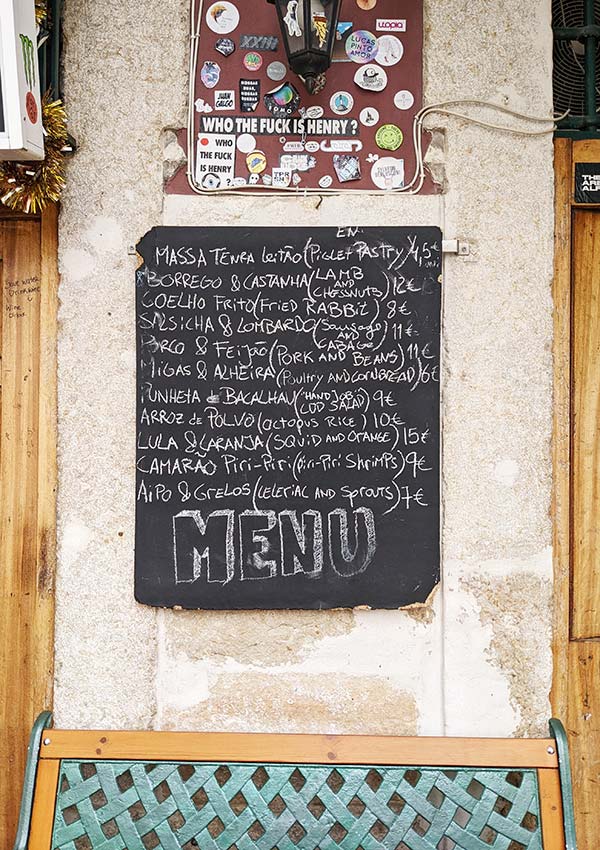 utopia
XXIII
LUCAS
PINTO
AMOR
JUAN
GALGO
WHO THE FUCK IS HENRY ?
WHO
THE FUCK
IS
HENRY ?
THE
EN.
MASSA TENRA Leitão (Piglet Pastry) 4,5€
BORREGO & CASTANHA (LAMB AND CHESSNUTS) 12€
COELHO FRITO (FRIED RABBIT) 8€
SALSICHA & LOMBARDO (Sausage AND CABAGE) 11€
PORCO & FEIJÃO (PORK AND BEANS) 11€
MIGAS & ALHEIRA (Poultry AND CORNBREAD) 6€
PUNHETA de BACALHAU ("HAND JOB" COD SALAD) 9€
ARROZ de POLVO (octopus RICE) 10€
LULA & LARANJA (SQUID AND ORANGE) 15€
CAMARÃO PIRI-PIRI (piri-Piri SHRIMPS) 9€
AIPO & GRELOS (CELERIAC AND SPROUTS) 7€
MENU